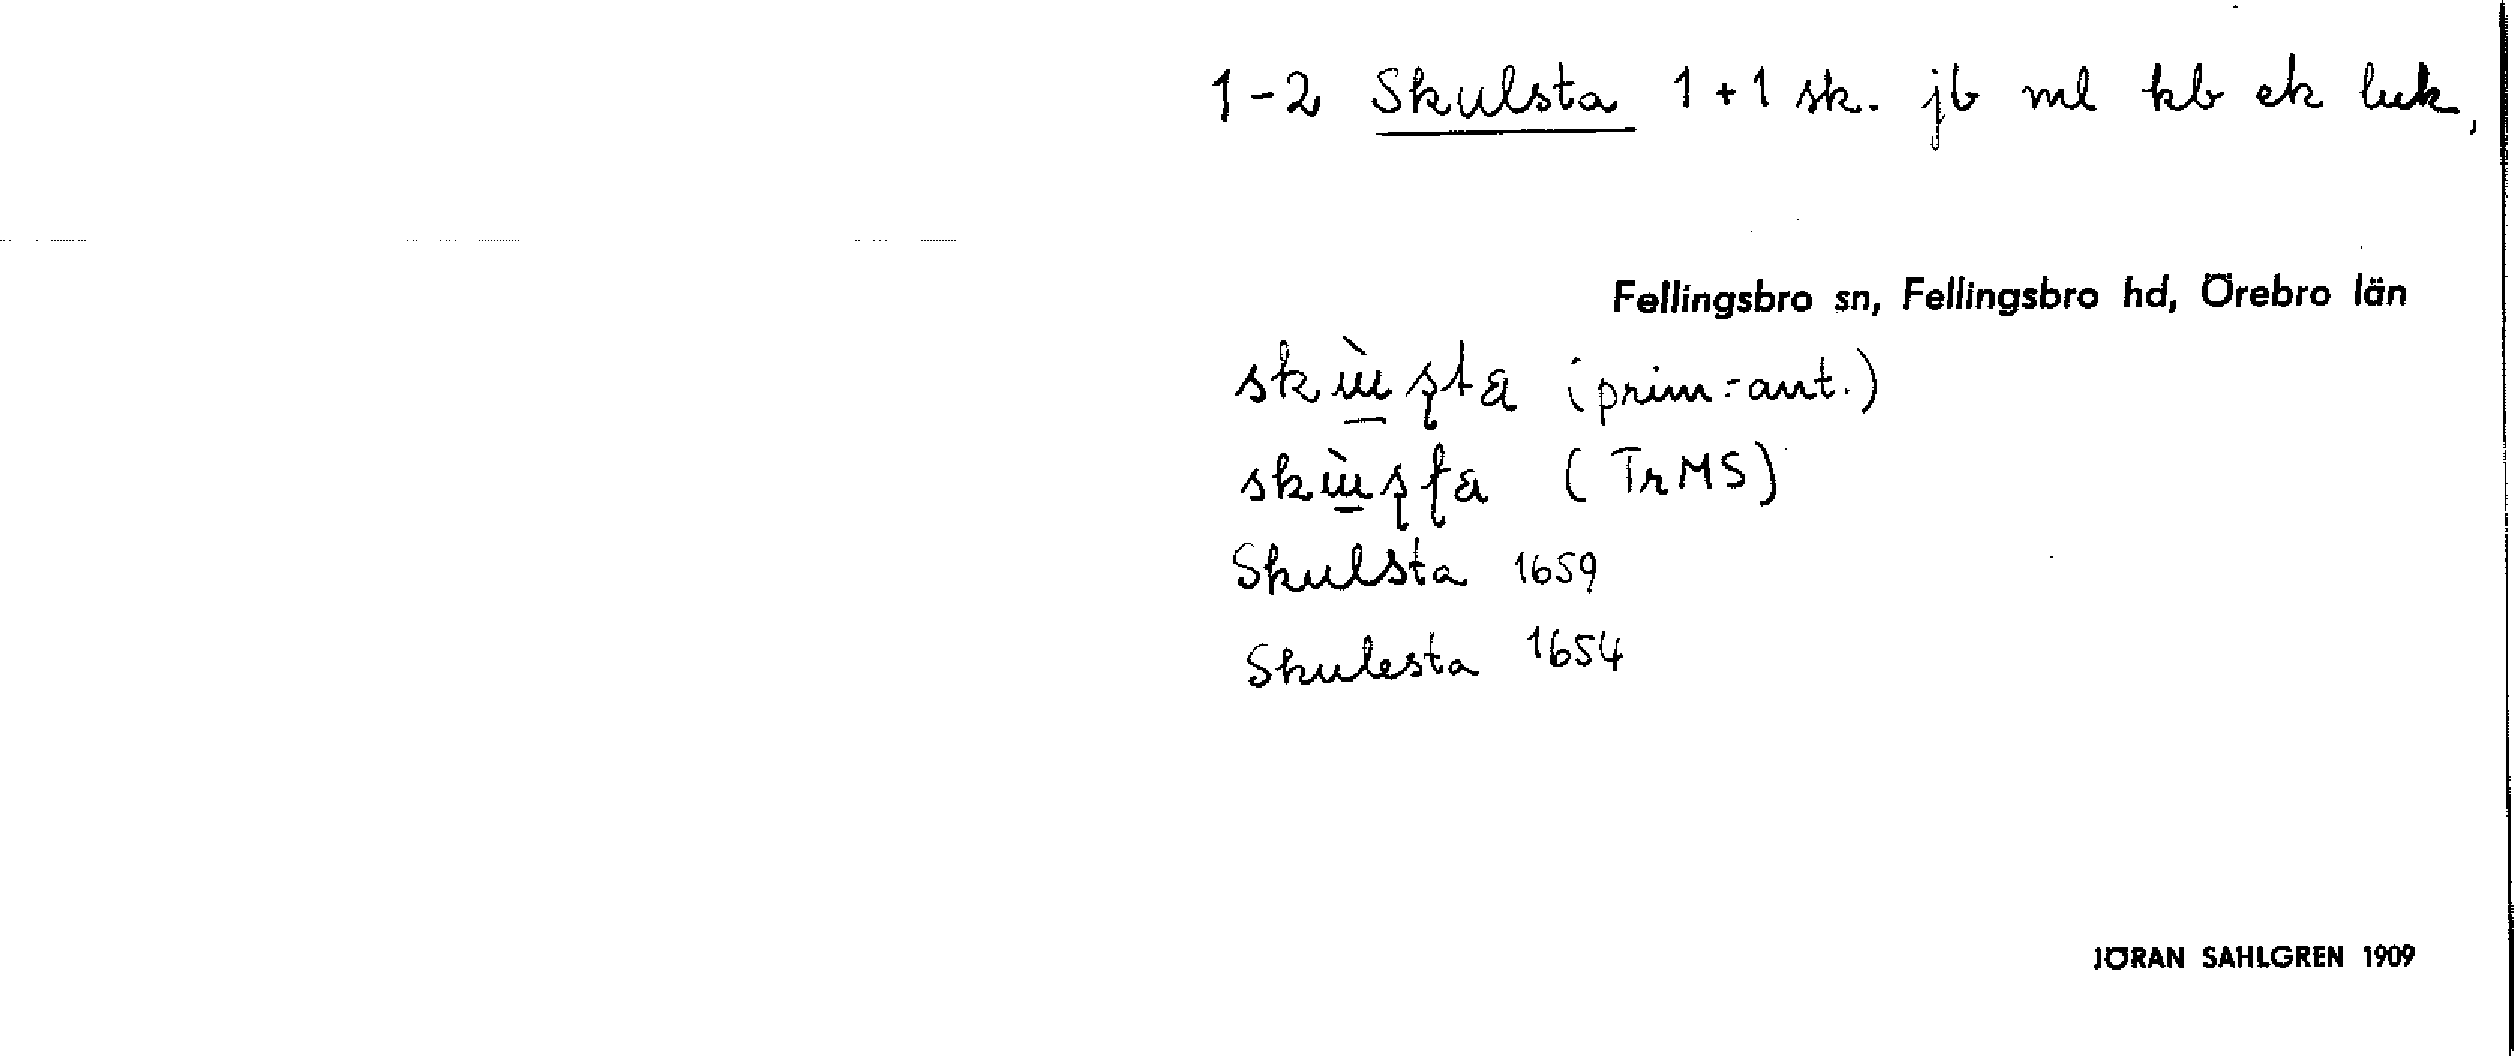 1-2 Skulsta 1+1 sk. jb ml kb ek luk,
Fellingsbro sn, Fellingsbro hd, Örebro län
(prim:-ant.)
(TrMS)
Skulsta 1659
Skulesta 1654
JÖRAN SAHLGREN 1909